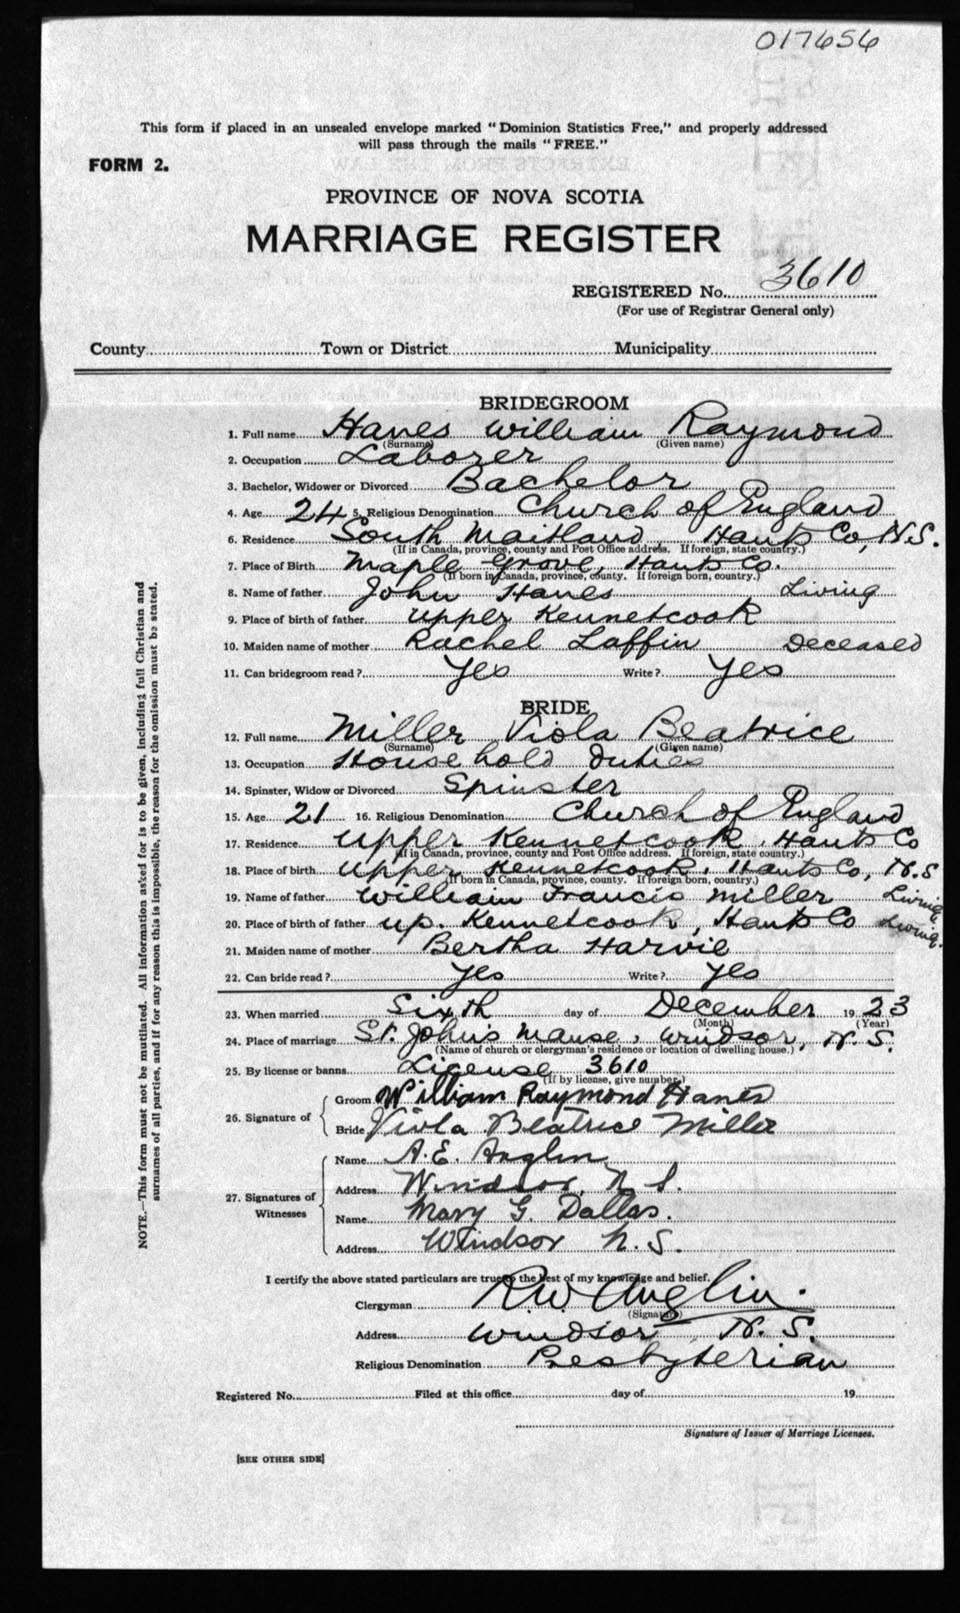 017656
This form if placed in an unsealed envelope marked "Dominion Statistics Free," and properly addressed
will pass through the mails "FREE."
FORM 2.
PROVINCE OF NOVA SCOTIA
MARRIAGE REGISTER
REGISTERED No. 3610
(For use of Registrar General only)
County Town or District Municipality
BRIDEGROOM
1. Full name Hanes William Raymond
(Surname) (Given name)
2. Occupation Laborer
3. Bachelor, Widower or Divorced Bachelor
4. Age 24 5. Religious Denomination Church of England
6. Residence South Maitland, Hants Co, N.S.
(If in Canada, province, county and Post Office address. If foreign, state country.)
7. Place of Birth Maple Grove, Hants Co.
(If born in Canada, province, county. If foreign born, country.)
8. Name of father John Hanes Living
9. Place of birth of father Upper Kennetcook
10. Maiden name of mother Rachel Laffin Deceased
11. Can bridegroom read? Yes Write? Yes
BRIDE
12. Full name Miller Viola Beatrice
(Surname) (Given name)
13. Occupation Household Duties
14. Spinster, Widow or Divorced Spinster
15. Age 21 16. Religious Denomination Church of England
17. Residence Upper Kennetcook, Hants Co
(If in Canada, province, county and Post Office address. If foreign, state country.)
18. Place of birth Upper Kennetcook, Hants Co, N.S
(If born in Canada, province, county. If foreign born, country.)
19. Name of father William Francis Miller Living
20. Place of birth of father up. Kennetcook, Hants Co Living.
21. Maiden name of mother Bertha Harvie
22. Can bride read? Yes Write? Yes
23. When married Sixth day of December 1923
(Month) (Year)
24. Place of marriage St. John's Manse, Windsor, N.S.
(Name of church or clergyman's residence or location of dwelling house.)
25. By license or banns License 3610
(If by license, give number.)
26. Signature of
Groom William Raymond Hanes
Bride Viola Beatrice Miller
27. Signatures of Witnesses
Name A.E. Anglin
Address Windsor, N S.
Name Mary G. Dallas.
Address Windsor N.S.
I certify the above stated particulars are true to the best of my knowledge and belief.
Clergyman R.W. Anglin.
(Signature)
Address Windsor, N.S.
Religious Denomination Presbyterian
Registered No. Filed at this office day of 19
Signature of Issuer of Marriage Licenses.
[SEE OTHER SIDE]
NOTE.—This form must not be mutilated. All information asked for is to be given, including full Christian and
surnames of all parties, and if for any reason this is impossible, the reason for the omission must be stated.